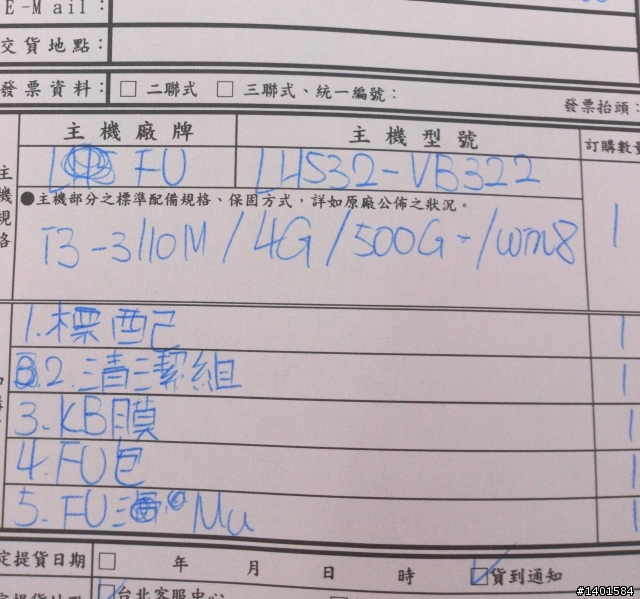 E-Mail：
交貨地點：
發票資料： □ 二聯式 □ 三聯式、統一編號： 發票抬頭：
主機廠牌 主機型號 訂購數量
FU LH532-VB322
主機規格
●主機部分之標準配備規格、保固方式，詳如原廠公佈之狀況。
I3-3110M/4G/500G-/win8 1
1.標配 1
2.清潔組 1
3.KB膜 1
4.FU包 1
5.FU Mu 1
定提貨日期 □ 年 月 日 時 ☑貨到通知
定提貨地點 ☑台北客服中心
#1401584